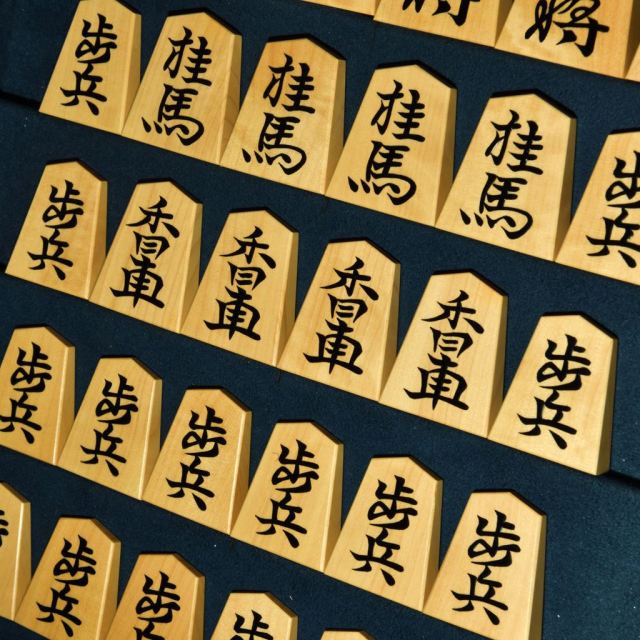 将
歩兵 桂馬 桂馬 桂馬 桂馬 歩兵
歩兵 香車 香車 香車 香車 歩兵
歩兵 歩兵 歩兵 歩兵 歩兵 歩兵
歩兵 歩兵 歩